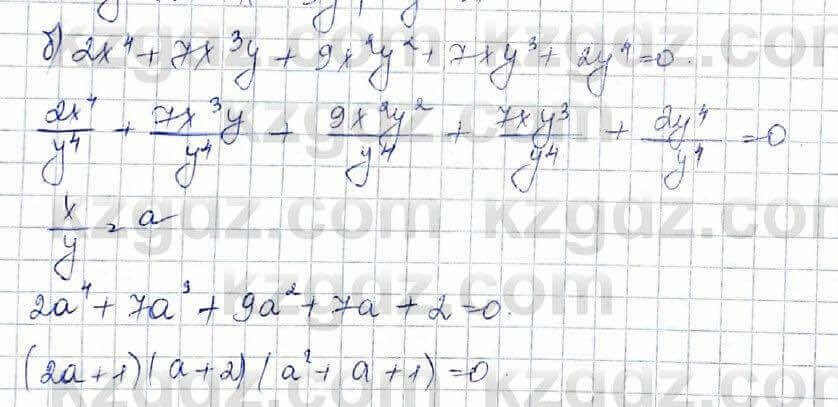 б) 2x⁴ + 7x³y + 9x²y² + 7xy³ + 2y⁴ = 0.
2x⁴/y⁴ + 7x³y/y⁴ + 9x²y²/y⁴ + 7xy³/y⁴ + 2y⁴/y⁴ = 0.
x/y = a
2a⁴ + 7a³ + 9a² + 7a + 2 = 0.
(2a + 1)(a + 2)(a² + a + 1) = 0.
kzgdz.com kzgdz.com
kzgdz.com
kzgdz.com kzgdz.com
kzgdz.com
kzgdz.com kzgdz.com